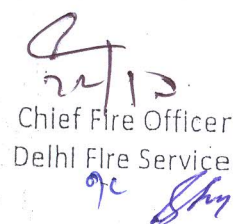 22/12
Chief Fire Officer
Delhi Fire Service